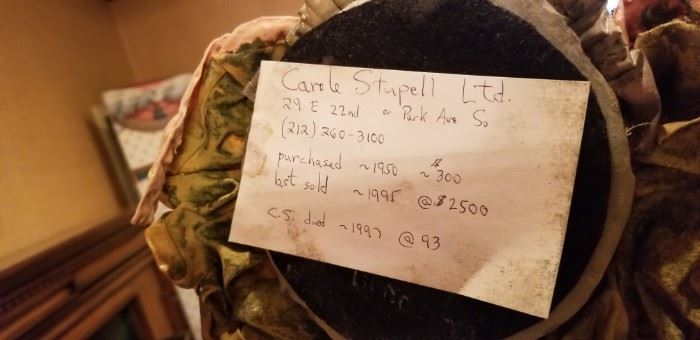 Carole Stupell Ltd.
29 E 22nd or Park Ave So
(212) 260-3100
purchased ~1950 ~ $300
last sold ~1995 @ $2500
C.S. died ~1997 @ 93